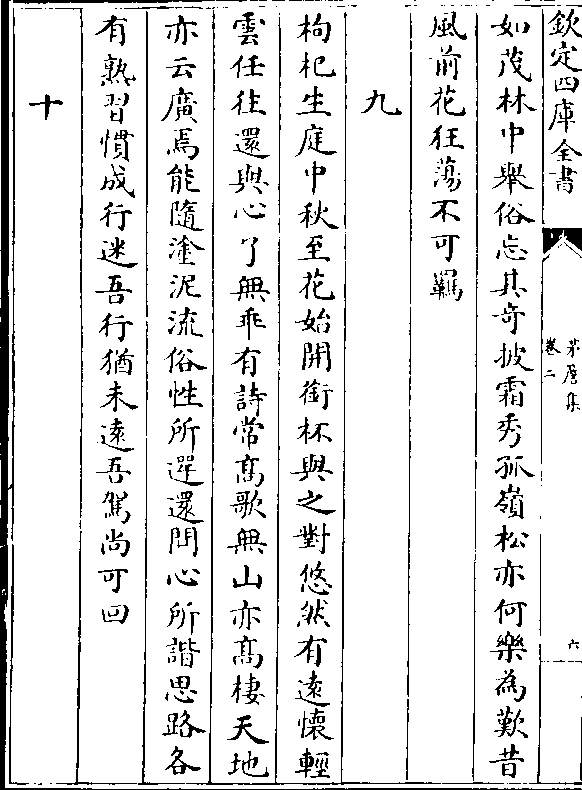 欽定四庫全書
茅簷集
卷二
六
如茂林中舉俗忘其竒披霜秀孤嶺松亦何樂為歎昔
風前花狂蕩不可羈
九
枸杞生庭中秋至花始開銜杯與之對悠然有遠懷輕
雲任往還與心了無乖有詩常髙歌無山亦髙棲天地
亦云廣焉能隨塗泥流俗性所逕還問心所諧思路各
有熟習慣成行迷吾行猶未遠吾駕尚可回
十